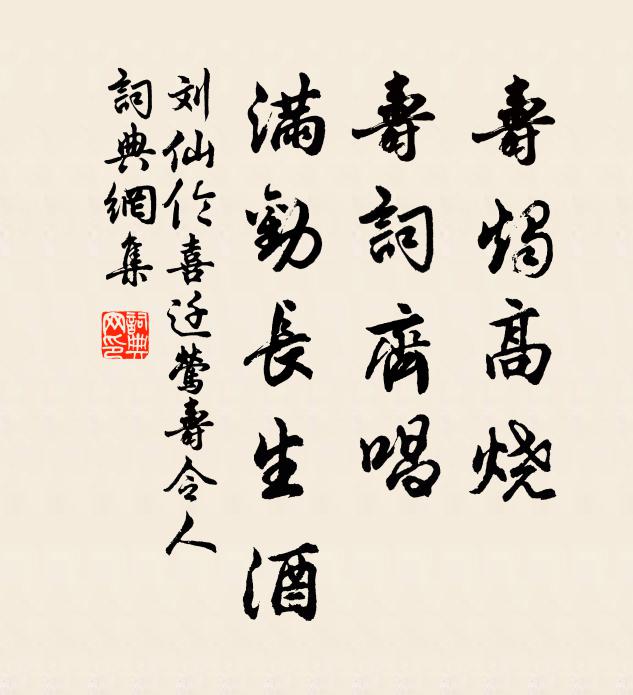 壽燭高燒
壽詞齊唱
滿勸長生酒
刘仙伦喜迁鶯壽令人
詞典網集
詞典网印